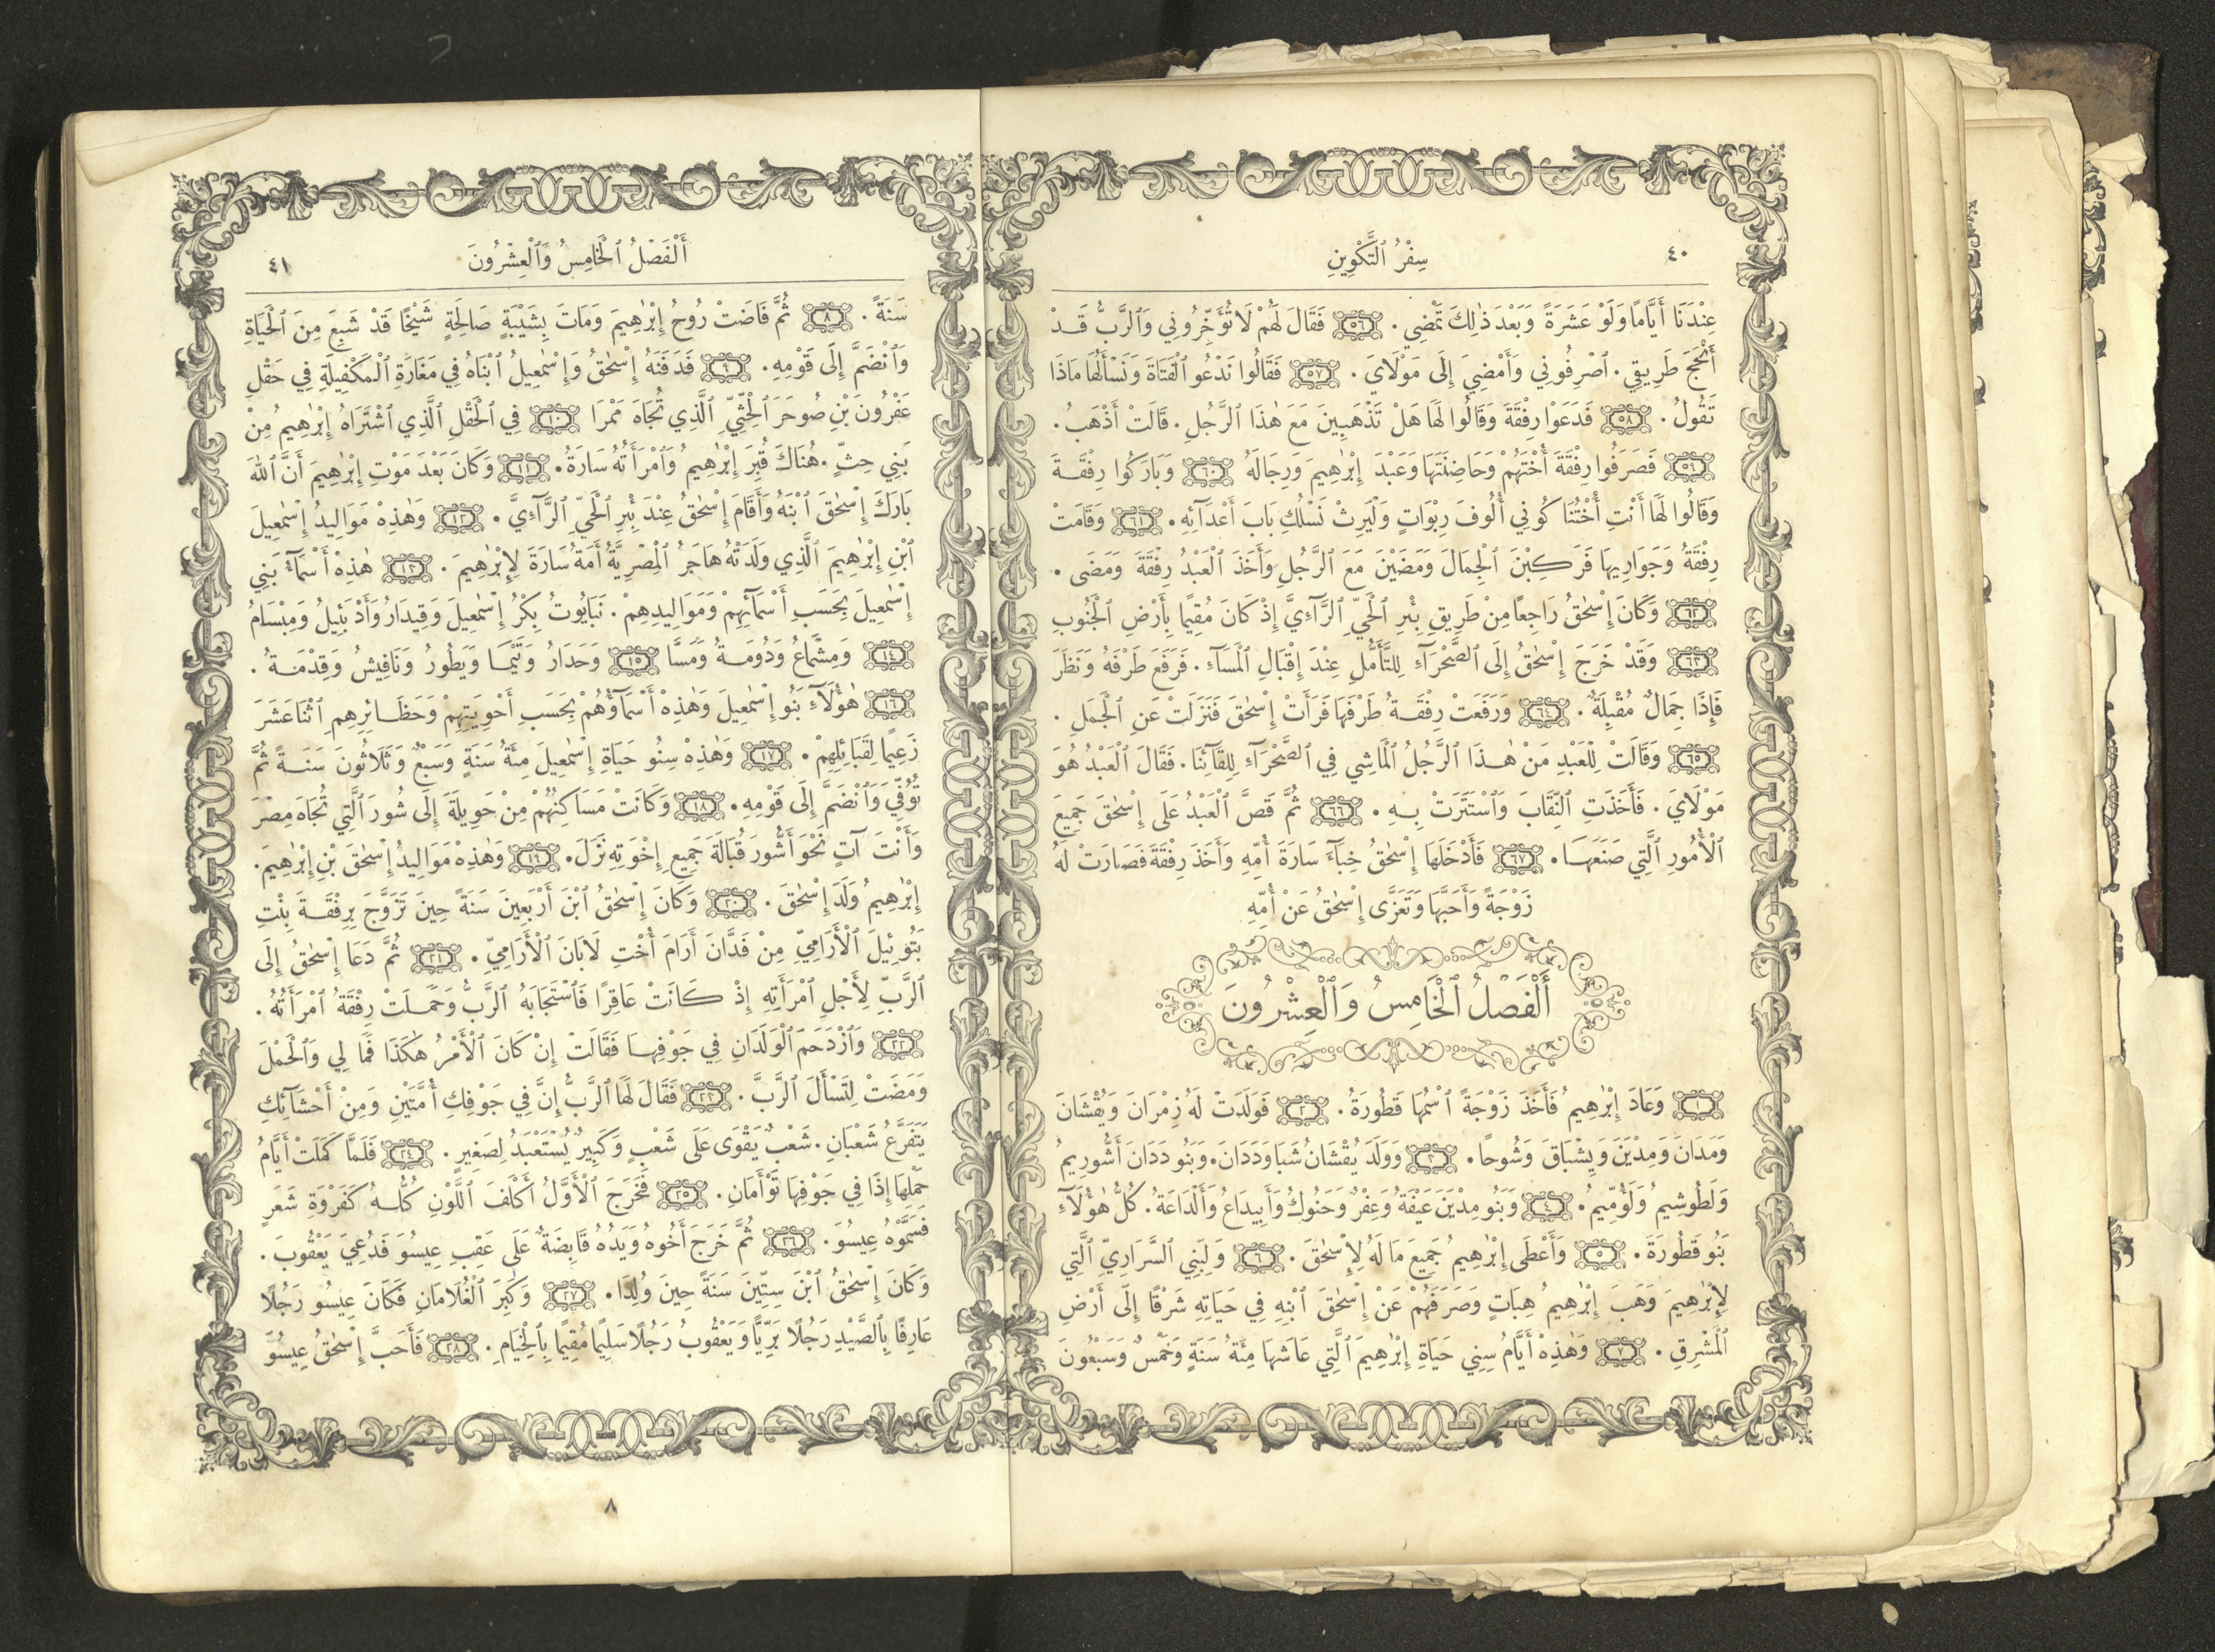 ٤٠
سِفْرُ ٱلتَّكْوِينِ
عِنْدَنَا أَيَّامًا وَلَوْ عَشَرَةً وَبَعْدَ ذٰلِكَ تَمْضِي . ٥٦ فَقَالَ لَهُمْ لَا تُؤَخِّرُونِي وَٱلرَّبُّ قَدْ
أَنْجَحَ طَرِيقِي . ٱصْرِفُونِي وَأَمْضِيَ إِلَى مَوْلَايَ . ٥٧ فَقَالُوا نَدْعُو ٱلْفَتَاةَ وَنَسْأَلُهَا مَاذَا
تَقُولُ . ٥٨ فَدَعَوْا رِفْقَةَ وَقَالُوا لَهَا هَلْ تَذْهَبِينَ مَعَ هٰذَا ٱلرَّجُلِ . قَالَتْ أَذْهَبُ .
٥٩ فَصَرَفُوا رِفْقَةَ أُخْتَهُمْ وَحَاضِنَتَهَا وَعَبْدَ إِبْرٰهِيمَ وَرِجَالَهُ ٦٠ وَبَارَكُوا رِفْقَةَ
وَقَالُوا لَهَا أَنْتِ أُخْتُنَا كُونِي أُلُوفَ رِبْوَاتٍ وَلْيَرِثْ نَسْلُكِ بَابَ أَعْدَآئِهِ . ٦١ وَقَامَتْ
رِفْقَةُ وَجَوَارِيهَا فَرَكِبْنَ ٱلْجِمَالَ وَمَضَيْنَ مَعَ ٱلرَّجُلِ وَأَخَذَ ٱلْعَبْدُ رِفْقَةَ وَمَضَى .
٦٢ وَكَانَ إِسْحٰقُ رَاجِعًا مِنْ طَرِيقِ بِئْرِ ٱلْحَيِّ ٱلرَّآءِيَّ إِذْ كَانَ مُقِيمًا بِأَرْضِ ٱلْجَنُوبِ
٦٣ وَقَدْ خَرَجَ إِسْحٰقُ إِلَى ٱلصَّحْرَآءِ لِلتَّأَمُّلِ عِنْدَ إِقْبَالِ ٱلْمَسَآءِ . فَرَفَعَ طَرْفَهُ وَنَظَرَ
فَإِذَا جِمَالٌ مُقْبِلَةٌ . ٦٤ وَرَفَعَتْ رِفْقَةُ طَرْفَهَا فَرَأَتْ إِسْحٰقَ فَنَزَلَتْ عَنِ ٱلْجَمَلِ .
٦٥ وَقَالَتْ لِلْعَبْدِ مَنْ هٰذَا ٱلرَّجُلُ ٱلْمَاشِي فِي ٱلصَّحْرَآءِ لِلِقَآئِنَا . فَقَالَ ٱلْعَبْدُ هُوَ
مَوْلَايَ . فَأَخَذَتِ ٱلنِّقَابَ وَٱسْتَتَرَتْ بِهِ . ٦٦ ثُمَّ قَصَّ ٱلْعَبْدُ عَلَى إِسْحٰقَ جَمِيعَ
ٱلْأُمُورِ ٱلَّتِي صَنَعَهَا . ٦٧ فَأَدْخَلَهَا إِسْحٰقُ خِبَآءَ سَارَةَ أُمِّهِ وَأَخَذَ رِفْقَةَ فَصَارَتْ لَهُ
زَوْجَةً وَأَحَبَّهَا وَتَعَزَّى إِسْحٰقُ عَنْ أُمِّهِ
أَلْفَصْلُ ٱلْخَامِسُ وَٱلْعِشْرُونَ
١ وَعَادَ إِبْرٰهِيمُ فَأَخَذَ زَوْجَةً ٱسْمُهَا قَطُورَةُ . ٢ فَوَلَدَتْ لَهُ زِمْرَانَ وَيُقْشَانَ
وَمَدَانَ وَمِدْيَنَ وَيِشْبَاقَ وَشُوحًا . ٣ وَوَلَدَ يُقْشَانُ شَبَا وَدَدَانَ . وَبَنُو دَدَانَ أَشُّورِيمُ
وَلَطُوشِيمُ وَلَؤُمِّيمُ . ٤ وَبَنُو مِدْيَنَ عَيْفَةُ وَعِفْرٌ وَحَنُوكُ وَأَبِيدَاعُ وَأَلْدَاعَةُ . كُلُّ هٰؤُلَآءِ
بَنُو قَطُورَةَ . ٥ وَأَعْطَى إِبْرٰهِيمُ جَمِيعَ مَا لَهُ لِإِسْحٰقَ . ٦ وَلِبَنِي ٱلسَّرَارِيِّ ٱلَّتِي
لِإِبْرٰهِيمَ وَهَبَ إِبْرٰهِيمُ هِبَاتٍ وَصَرَفَهُمْ عَنْ إِسْحٰقَ ٱبْنِهِ فِي حَيَاتِهِ شَرْقًا إِلَى أَرْضِ
ٱلْمَشْرِقِ . ٧ وَهٰذِهْ أَيَّامُ سِنِي حَيَاةِ إِبْرٰهِيمَ ٱلَّتِي عَاشَهَا مِئَةُ سَنَةٍ وَخَمْسٌ وَسَبْعُونَ
أَلْفَصْلُ ٱلْخَامِسُ وَٱلْعِشْرُونَ
٤١
سَنَةً . ٨ ثُمَّ فَاضَتْ رُوحُ إِبْرٰهِيمَ وَمَاتَ بِشَيْبَةٍ صَالِحَةٍ شَيْخًا قَدْ شَبِعَ مِنَ ٱلْحَيَاةِ
وَٱنْضَمَّ إِلَى قَوْمِهِ . ٩ فَدَفَنَهُ إِسْحٰقُ وَإِسْمٰعِيلُ ٱبْنَاهُ فِي مَغَارَةِ ٱلْمَكْفِيلَةِ فِي حَقْلِ
عَفْرُونَ بْنِ صُوحَرَ ٱلْحِثِّيِّ ٱلَّذِي تُجَاهَ مَمْرَا ١٠ فِي ٱلْحَقْلِ ٱلَّذِي ٱشْتَرَاهُ إِبْرٰهِيمُ مِنْ
بَنِي حِثٍّ . هُنَاكَ قُبِرَ إِبْرٰهِيمُ وَٱمْرَأَتُهُ سَارَةُ . ١١ وَكَانَ بَعْدَ مَوْتِ إِبْرٰهِيمَ أَنَّ ٱللهَ
بَارَكَ إِسْحٰقَ ٱبْنَهُ وَأَقَامَ إِسْحٰقُ عِنْدَ بِئْرِ ٱلْحَيِّ ٱلرَّآءِيَّ . ١٢ وَهٰذِهْ مَوَالِيدُ إِسْمٰعِيلَ
ٱبْنِ إِبْرٰهِيمَ ٱلَّذِي وَلَدَتْهُ هَاجَرُ ٱلْمِصْرِيَّةُ أَمَةُ سَارَةَ لِإِبْرٰهِيمَ . ١٣ هٰذِهْ أَسْمَآءُ بَنِي
إِسْمٰعِيلَ بِحَسَبِ أَسْمَآئِهِمْ وَمَوَالِيدِهِمْ . نَبَايُوتُ بِكْرُ إِسْمٰعِيلَ وَقِيدَارُ وَأَدْبَئِيلُ وَمِبْسَامُ
١٤ وَمِشْمَاعُ وَدُومَةُ وَمَسَّا ١٥ وَحَدَارُ وَتَيْمَا وَيَطُورُ وَنَافِيشُ وَقِدْمَةُ .
١٦ هٰؤُلَآءِ بَنُو إِسْمٰعِيلَ وَهٰذِهْ أَسْمَآؤُهُمْ بِحَسَبِ أَحْوِيَتِهِمْ وَحَظَائِرِهِمِ ٱثْنَا عَشَرَ
زَعِيمًا لِقَبَائِلِهِمْ . ١٧ وَهٰذِهْ سِنُو حَيَاةِ إِسْمٰعِيلَ مِئَةُ سَنَةٍ وَسَبْعٌ وَثَلَاثُونَ سَنَةً ثُمَّ
تُوُفِّيَ وَٱنْضَمَّ إِلَى قَوْمِهِ . ١٨ وَكَانَتْ مَسَاكِنُهُمْ مِنْ حَوِيلَةَ إِلَى شُورَ ٱلَّتِي تُجَاهَ مِصْرَ
وَأَنْتَ آتٍ نَحْوَ أَشُّورَ قُبَالَةَ جَمِيعِ إِخْوَتِهِ نَزَلَ . ١٩ وَهٰذِهْ مَوَالِيدُ إِسْحٰقَ بْنِ إِبْرٰهِيمَ .
إِبْرٰهِيمُ وَلَدَ إِسْحٰقَ . ٢٠ وَكَانَ إِسْحٰقُ ٱبْنَ أَرْبَعِينَ سَنَةً حِينَ تَزَوَّجَ بِرِفْقَةَ بِنْتِ
بَتُوئِيلَ ٱلْأَرَامِيِّ مِنْ فَدَّانَ أَرَامَ أُخْتِ لَابَانَ ٱلْأَرَامِيِّ . ٢١ ثُمَّ دَعَا إِسْحٰقُ إِلَى
ٱلرَّبِّ لِأَجْلِ ٱمْرَأَتِهِ إِذْ كَانَتْ عَاقِرًا فَٱسْتَجَابَهُ ٱلرَّبُّ وَحَمَلَتْ رِفْقَةُ ٱمْرَأَتُهُ .
٢٢ وَٱزْدَحَمَ ٱلْوَلَدَانِ فِي جَوْفِهَا فَقَالَتْ إِنْ كَانَ ٱلْأَمْرُ هٰكَذَا فَمَا لِي وَٱلْحَمْلَ
وَمَضَتْ لِتَسْأَلَ ٱلرَّبَّ . ٢٣ فَقَالَ لَهَا ٱلرَّبُّ إِنَّ فِي جَوْفِكِ أُمَّتَيْنِ وَمِنْ أَحْشَآئِكِ
يَتَفَرَّعُ شَعْبَانِ . شَعْبٌ يَقْوَى عَلَى شَعْبٍ وَكَبِيرٌ يُسْتَعْبَدُ لِصَغِيرٍ . ٢٤ فَلَمَّا كَمَلَتْ أَيَّامُ
حَمْلِهَا إِذَا فِي جَوْفِهَا تَوْأَمَانِ . ٢٥ فَخَرَجَ ٱلْأَوَّلُ أَكْلَفَ ٱللَّوْنِ كُلُّهُ كَفَرْوَةِ شَعَرٍ
فَسَمَّوْهُ عِيسُوَ . ٢٦ ثُمَّ خَرَجَ أَخُوهُ وَيَدُهُ قَابِضَةٌ عَلَى عَقِبِ عِيسُوَ فَدُعِيَ يَعْقُوبَ .
وَكَانَ إِسْحٰقُ ٱبْنَ سِتِّينَ سَنَةً حِينَ وُلِدَا . ٢٧ وَكَبِرَ ٱلْغُلَامَانِ فَكَانَ عِيسُو رَجُلًا
عَارِفًا بِٱلصَّيْدِ رَجُلًا بَرِّيًّا وَيَعْقُوبُ رَجُلًا سَلِيمًا مُقِيمًا بِٱلْخِيَامِ . ٢٨ فَأَحَبَّ إِسْحٰقُ عِيسُوَ
٨